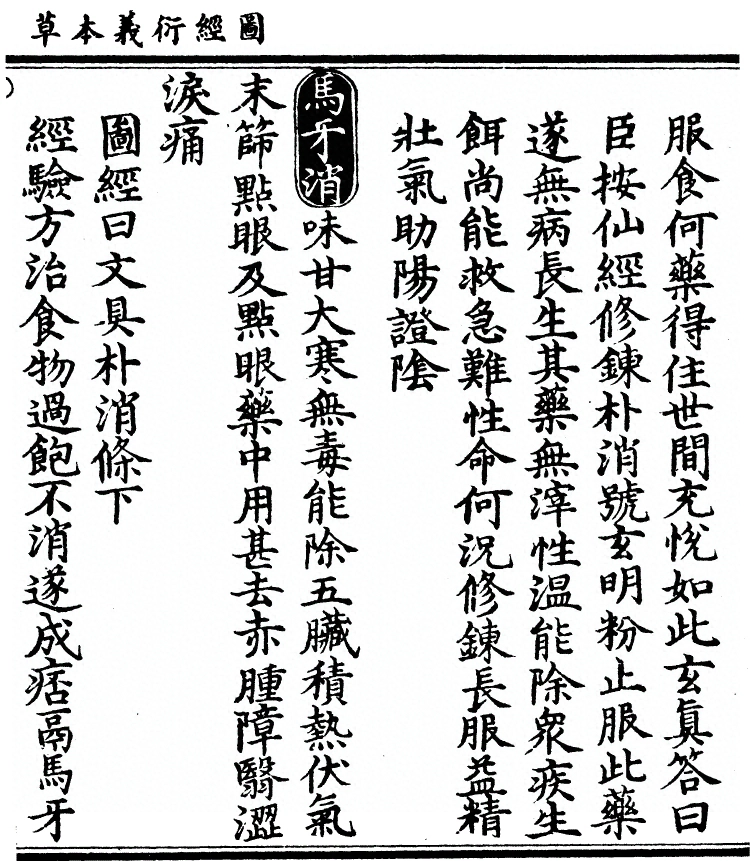 圖經衍義本草
服食何藥得住世間充悅如此玄真答曰
臣按仙經修鍊朴消號玄明粉止服此藥
遂無病長生其藥無滓性溫能除衆疾生
餌尚能救急難性命何況修鍊長服益精
壯氣助陽證陰
馬牙消味甘大寒無毒能除五臟積熱伏氣
末篩點眼及點眼藥中用甚去赤腫障翳澀
淚痛
圖經曰文具朴消條下
經驗方治食物過飽不消遂成痞鬲馬牙